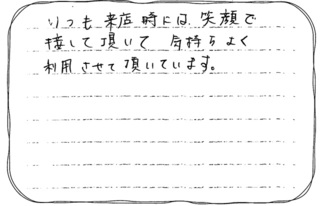 いつも来店時には笑顔で
接して頂いて 気持ちよく
利用させて頂いています。